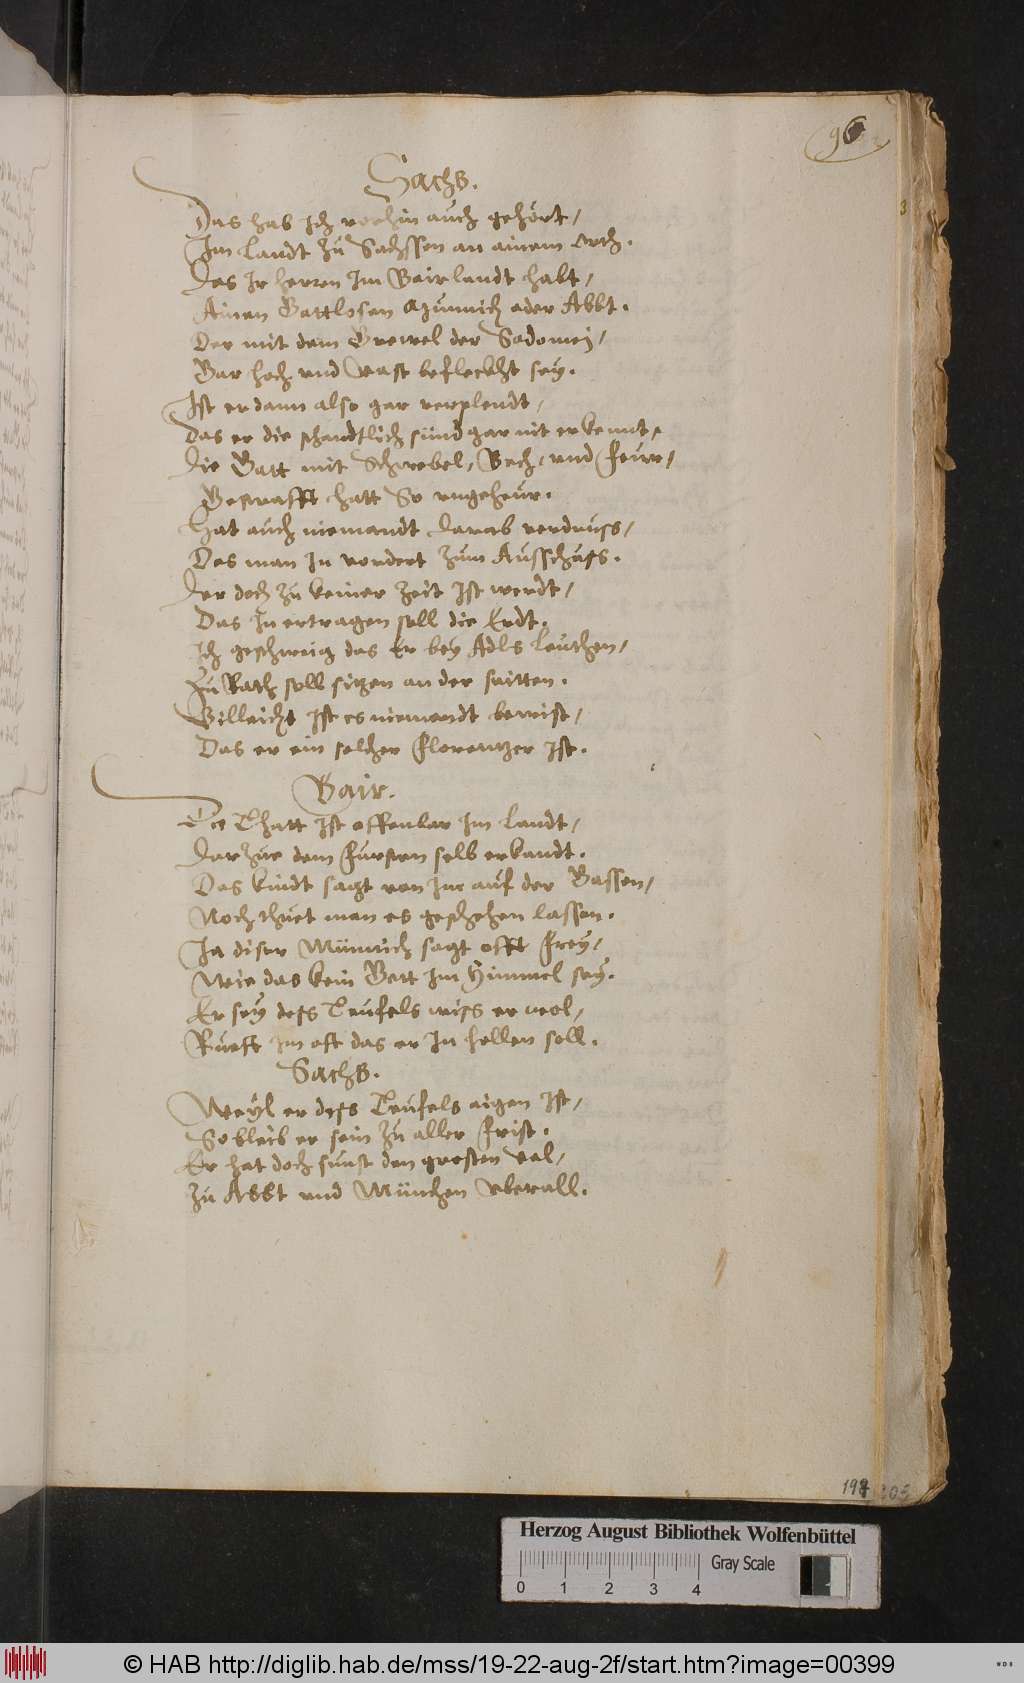 96
Sachs.
Das hab Ich vorhin auch gehört,
Im Landt zu Sachssen an ainem orth.
Das Ir herren Im Bairlandt habt,
Ainen Gottlosen Münnich oder Abbt.
Der mit dem Grewel der Sodomej,
Gar hoch und vast befleckht sey.
Ist er dann also gar verplendt,
Das er die schandtlich sünd gar nit erkennt,
Die Gott mit Schwebel, Bech, und Feur,
Gestrafft hatt So ungeheur.
Hat auch niemandt darab verdruss,
Das man In vordert zum Ausschuss.
Der doch zu keiner Zeit Ist werdt,
Das In ertragen soll die Erdt.
Ich geschweig das Er bey Adls Leuthen,
Zu Rath soll sitzen an der seitten.
Villeicht Ist es niemandt bewist,
Das er ein solcher Florentzer Ist.
Bair.
Die Thatt Ist offenbar Im Landt,
Darzue dem Fursten selb erkandt.
Das kindt sagt von Im auf der Gassen,
Noch thuet man es geschehen lassen.
Ja diser Münnich sagt offt Frey,
Wie das kein Gott Im Himmel sey.
Er sey dess Teufels wiss er wol,
Rueft Im oft das er In hollen soll.
Sachs.
Weyl er dess Teufels aigen Ist,
So bleib er sein zu aller Frist.
Er hat doch sunst den grosten val,
Zu Abbt und München uberall.
Herzog August Bibliothek Wolfenbüttel
0 1 2 3 4
Gray Scale
© HAB http://diglib.hab.de/mss/19-22-aug-2f/start.htm?image=00399